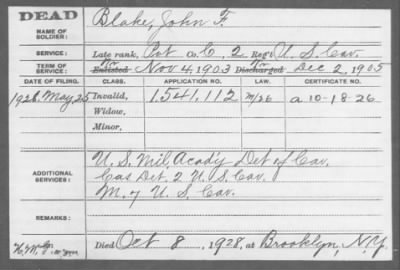 DEAD
NAME OF SOLDIER: Blake, John F
SERVICE: Late rank, Pvt Co. C, 2 Reg't U.S. Cav.
TERM OF SERVICE: Enlisted Nov 4, 1903 Discharged Dec 2, 1905
DATE OF FILING. CLASS. APPLICATION NO. LAW. CERTIFICATE NO.
1926 May, 25 Invalid, 1.541,112 m/26 a 10-18-26
Widow,
Minor,
ADDITIONAL SERVICES: U.S. Mil Acad'y Det of Cav.
Cas Det 2 U.S. Cav.
M. 7 U.S. Cav.
REMARKS:
Died Oct 8, 1928, at Brooklyn, N.Y.